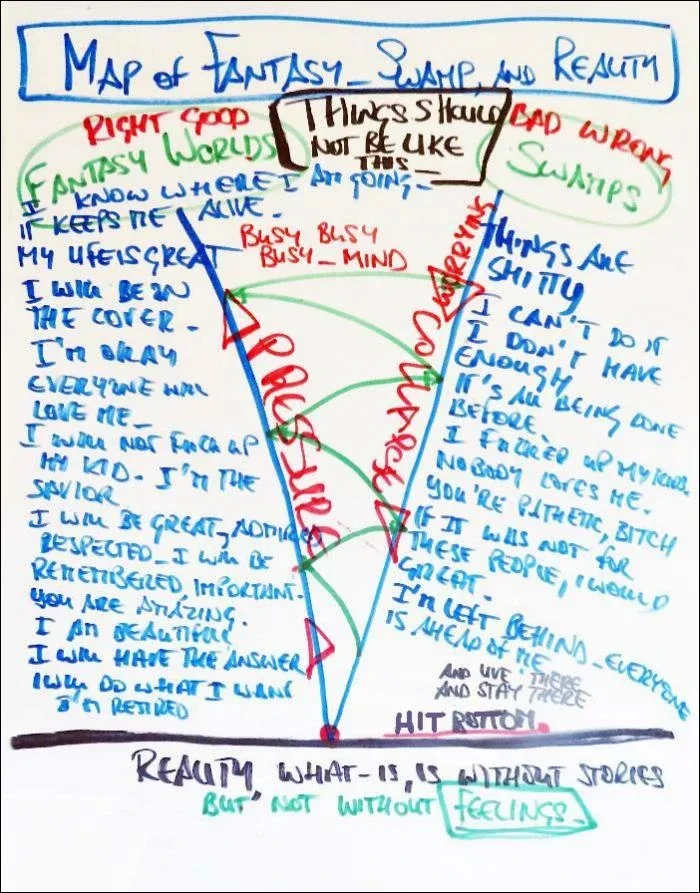 MAP OF FANTASY_ SWAMP, AND REALITY
RIGHT GOOD
FANTASY WORLDS
THINGS SHOULD
NOT BE LIKE
THIS_
BAD WRONG
SWAMPS
I KNOW WHERE I AM GOING_
IT KEEPS ME ALIVE.
MY LIFE IS GREAT
I WILL BE ON
THE COVER_
I'M OKAY
EVERYONE WILL
LOVE ME_
I WILL NOT FUCK UP
MY KID. I'M THE
SAVIOR
I WILL BE GREAT, ADMIRED
RESPECTED_ I WILL BE
REMEMBERED, IMPORTANT.
YOU ARE AMAZING.
I AM BEAUTIFUL
I WILL HAVE THE ANSWER
I WILL DO WHAT I WANT
I'M RETIRED
BUSY BUSY
BUSY_MIND
PRESSURE
WORRYING
COLLAPSE
THINGS ARE
SHITTY
I CAN'T DO IT
I DON'T HAVE
ENOUGH
IT'S ALL BEING DONE
BEFORE.
I FUCKED UP MY KIDS.
NOBODY LOVES ME.
YOU'RE PATHETIC, BITCH
IF IT WAS NOT FOR
THESE PEOPLE, I WOULD
GREAT.
I'M LEFT BEHIND_ EVERYONE
IS AHEAD OF ME
AND LIVE THERE
AND STAY THERE
HIT BOTTOM.
REALITY, WHAT-IS, IS WITHOUT STORIES
BUT NOT WITHOUT FEELINGS_